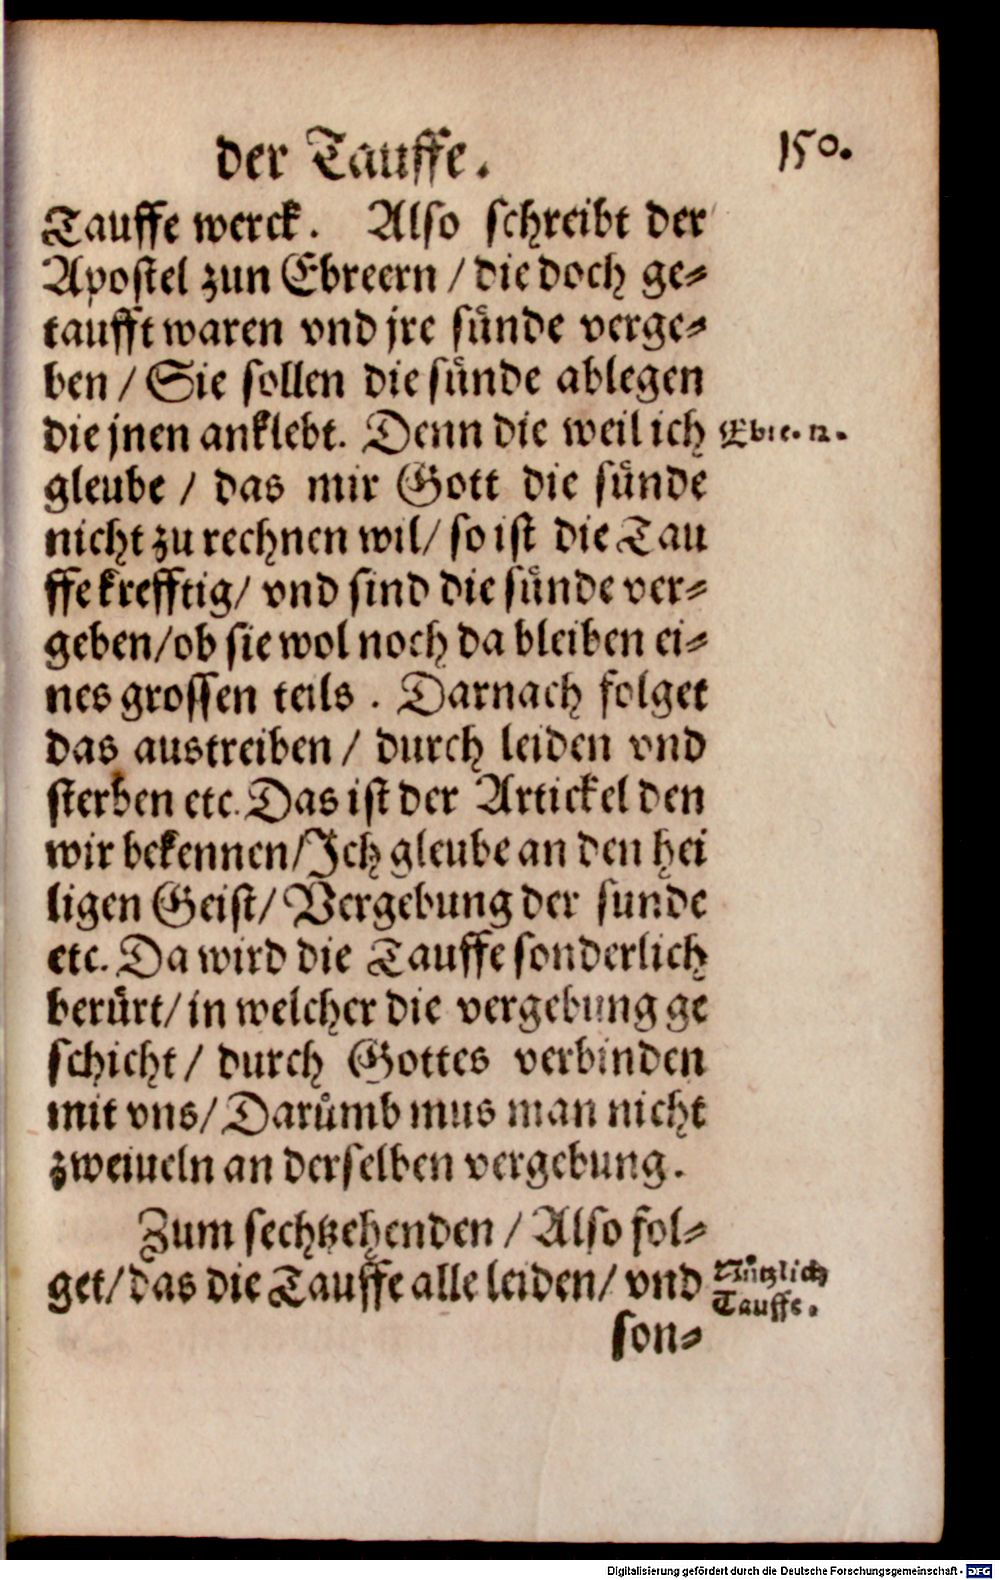 der Tauffe. 150.
Tauffe werck. Also schreibt der
Apostel zun Ebreern / die doch ge-
taufft waren vnd jre sünde verge-
ben / Sie sollen die sünde ablegen
die jnen anklebt. Denn die weil ich
Ebre. 12.
gleube / das mir Gott die sünde
nicht zu rechnen wil / so ist die Tau
ffe krefftig / vnd sind die sünde ver-
geben / ob sie wol noch da bleiben ei-
nes grossen teils. Darnach folget
das austreiben / durch leiden vnd
sterben etc. Das ist der Artickel den
wir bekennen / Ich gleube an den hei
ligen Geist / Vergebung der sunde
etc. Da wird die Tauffe sonderlich
berürt / in welcher die vergebung ge
schicht / durch Gottes verbinden
mit vns / Darümb mus man nicht
zweiueln an derselben vergebung.
Zum sechtzehenden / Also fol-
get / das die Tauffe alle leiden / vnd
Nützlich
Tauffe.
son-
Digitalisierung gefördert durch die Deutsche Forschungsgemeinschaft - DFG